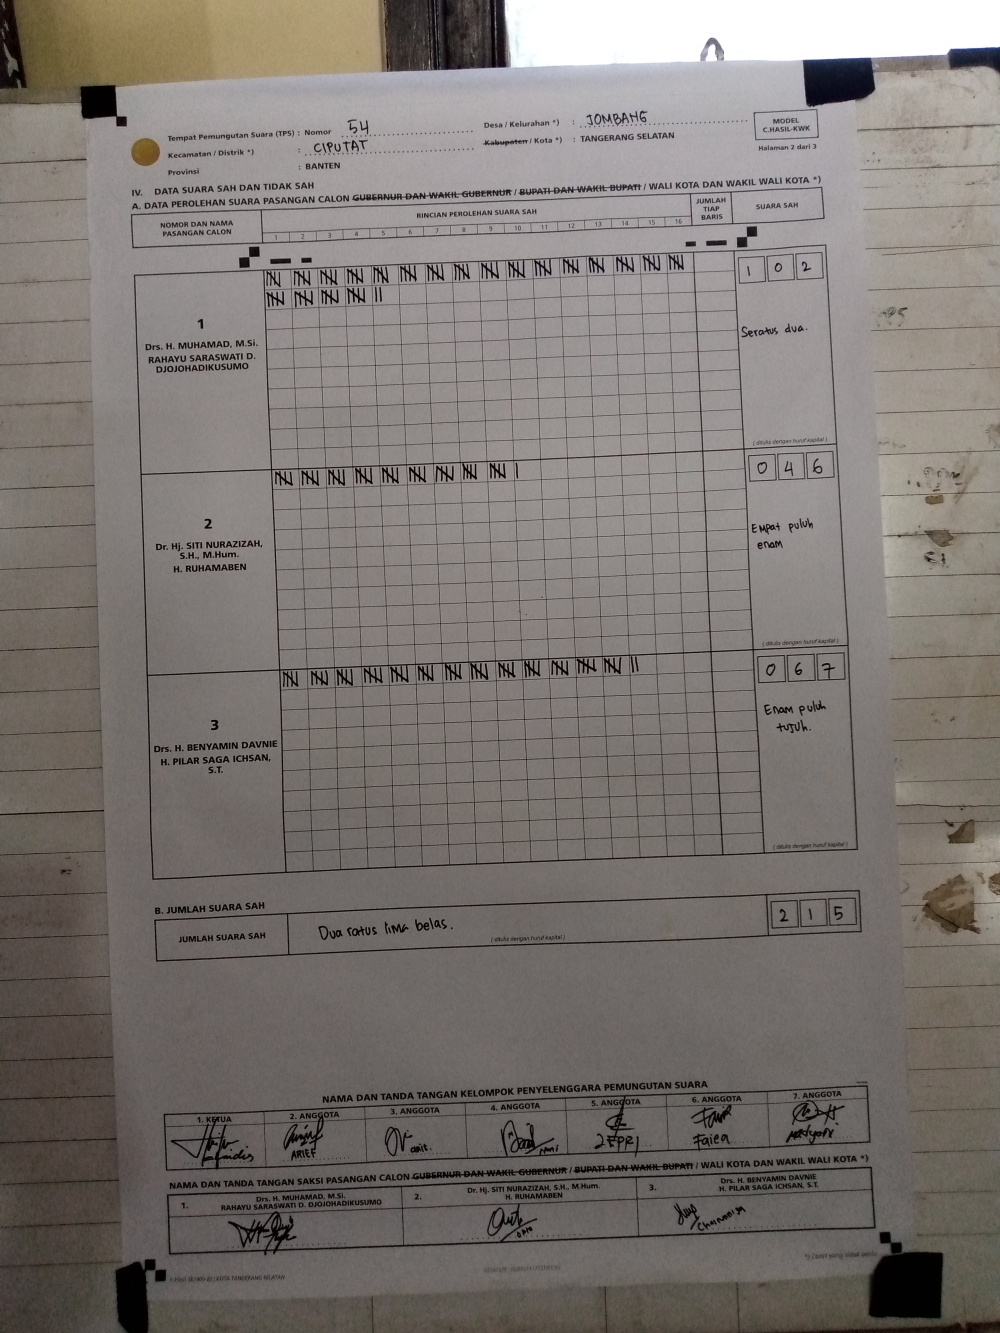 Tempat Pemungutan Suara (TPS) : Nomor 54
Desa / Kelurahan *) : JOMBANG
MODEL
C.HASIL-KWK
Kecamatan / Distrik *) : CIPUTAT
Kabupaten / Kota *) : TANGERANG SELATAN
Halaman 2 dari 3
Provinsi : BANTEN
IV. DATA SUARA SAH DAN TIDAK SAH
A. DATA PEROLEHAN SUARA PASANGAN CALON GUBERNUR DAN WAKIL GUBERNUR / BUPATI DAN WAKIL BUPATI / WALI KOTA DAN WAKIL WALI KOTA *)
NOMOR DAN NAMA
PASANGAN CALON
RINCIAN PEROLEHAN SUARA SAH
JUMLAH
TIAP
BARIS
SUARA SAH
1 2 3 4 5 6 7 8 9 10 11 12 13 14 15 16
1
Drs. H. MUHAMAD, M.Si.
RAHAYU SARASWATI D.
DJOJOHADIKUSUMO
1 0 2
Seratus dua.
( ditulis dengan huruf kapital )
2
Dr. Hj. SITI NURAZIZAH,
S.H., M.Hum.
H. RUHAMABEN
0 4 6
Empat puluh
enam
( ditulis dengan huruf kapital )
3
Drs. H. BENYAMIN DAVNIE
H. PILAR SAGA ICHSAN,
S.T.
0 6 7
Enam puluh
tujuh.
( ditulis dengan huruf kapital )
B. JUMLAH SUARA SAH
JUMLAH SUARA SAH
Dua ratus lima belas.
( ditulis dengan huruf kapital )
2 1 5
NAMA DAN TANDA TANGAN KELOMPOK PENYELENGGARA PEMUNGUTAN SUARA
1. KETUA 2. ANGGOTA 3. ANGGOTA 4. ANGGOTA 5. ANGGOTA 6. ANGGOTA 7. ANGGOTA
ARIEF
NAMA DAN TANDA TANGAN SAKSI PASANGAN CALON GUBERNUR DAN WAKIL GUBERNUR / BUPATI DAN WAKIL BUPATI / WALI KOTA DAN WAKIL WALI KOTA *)
1. Drs. H. MUHAMAD, M.Si.
RAHAYU SARASWATI D. DJOJOHADIKUSUMO
2. Dr. Hj. SITI NURAZIZAH, S.H., M.Hum.
H. RUHAMABEN
3. Drs. H. BENYAMIN DAVNIE
H. PILAR SAGA ICHSAN, S.T.
*) Coret yang tidak perlu